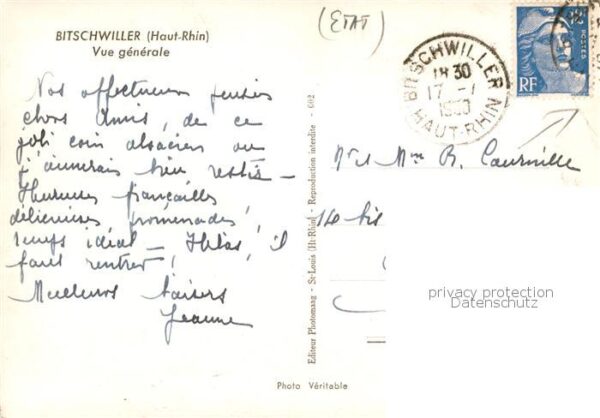 BITSCHWILLER (Haut-Rhin)
Vue générale
(ETAT)
BITSCHWILLER
18 30
17 - 1
HAUT-RHIN
POSTES
RF
Nos affectueuses pensées
chers amis, de ce
joli coin alsacien où
j'aimerais bien rester -
Heureuses fiançailles
délicieuses promenades,
temps idéal - Hélas, il
faut rentrer !
Meilleurs baisers
Jeanne
Editeur Photomaag - St-Louis (Ht-Rhin) - Reproduction interdite - 602
Mr et Mme R. Courville
14 bis
privacy protection
Datenschutz
Photo Véritable